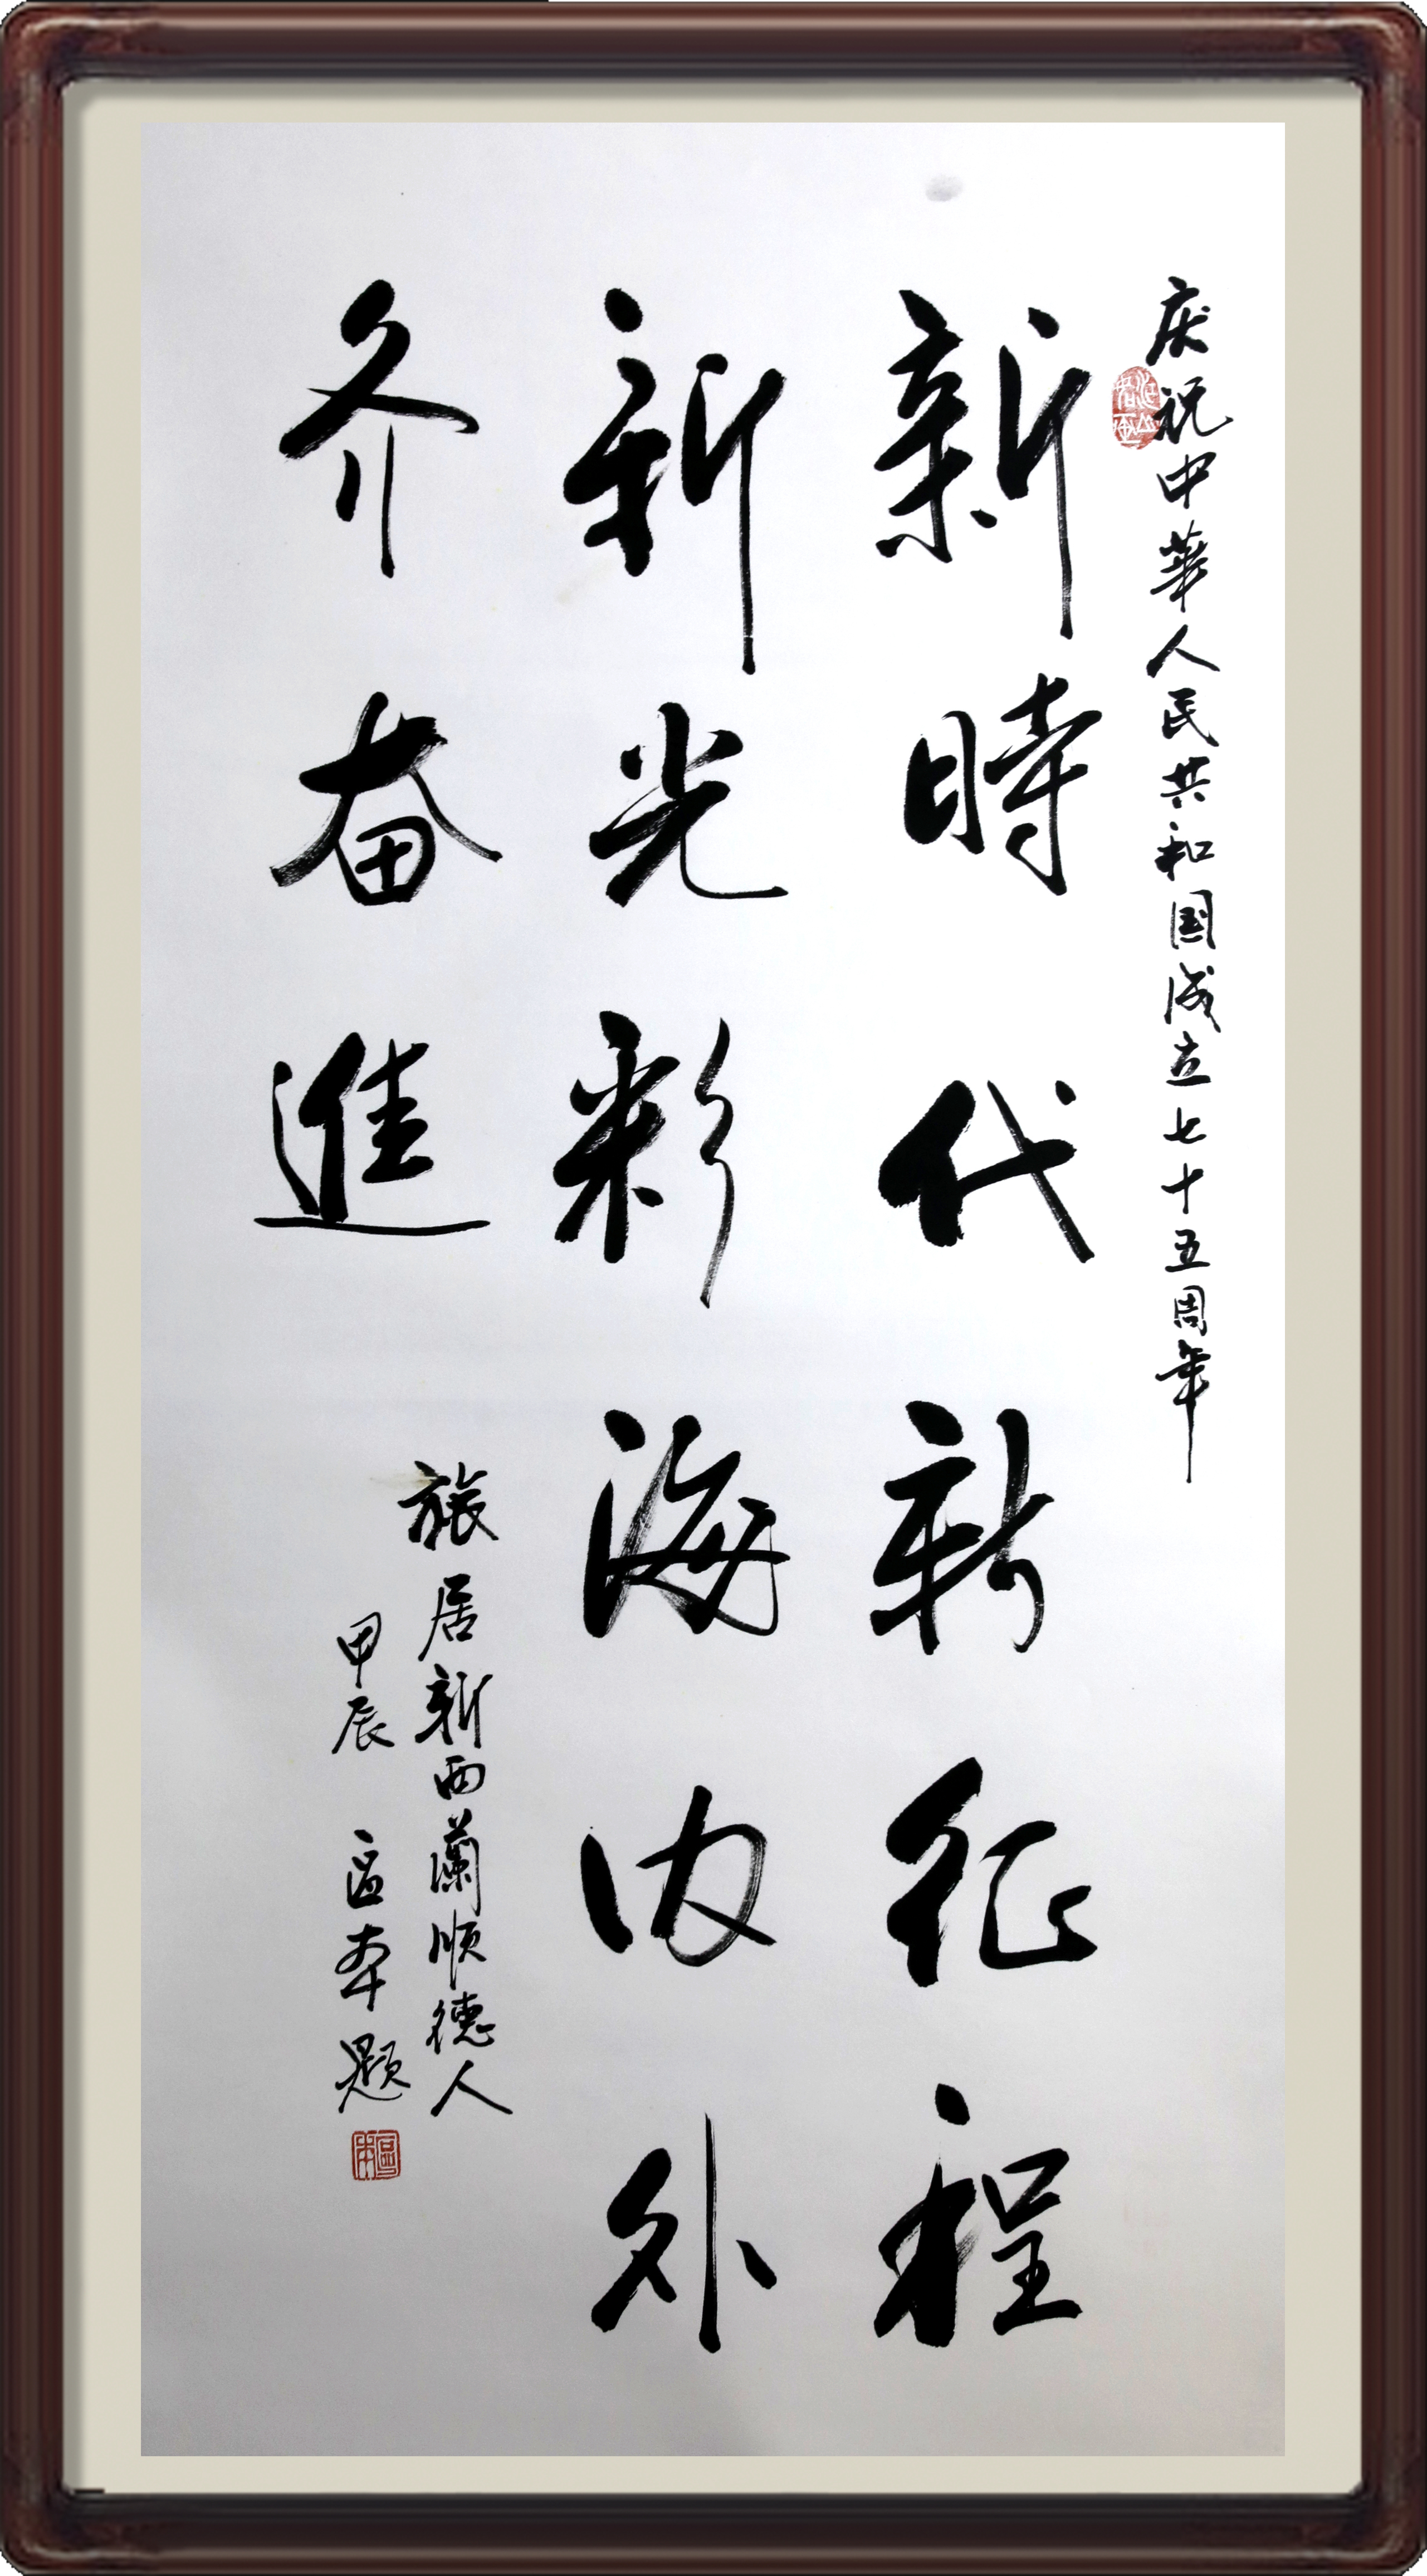 庆祝中華人民共和国成立七十五周年
新時代新征程
新光彩海内外
齐奋進
旅居新西蘭顺德人
甲辰 区本题